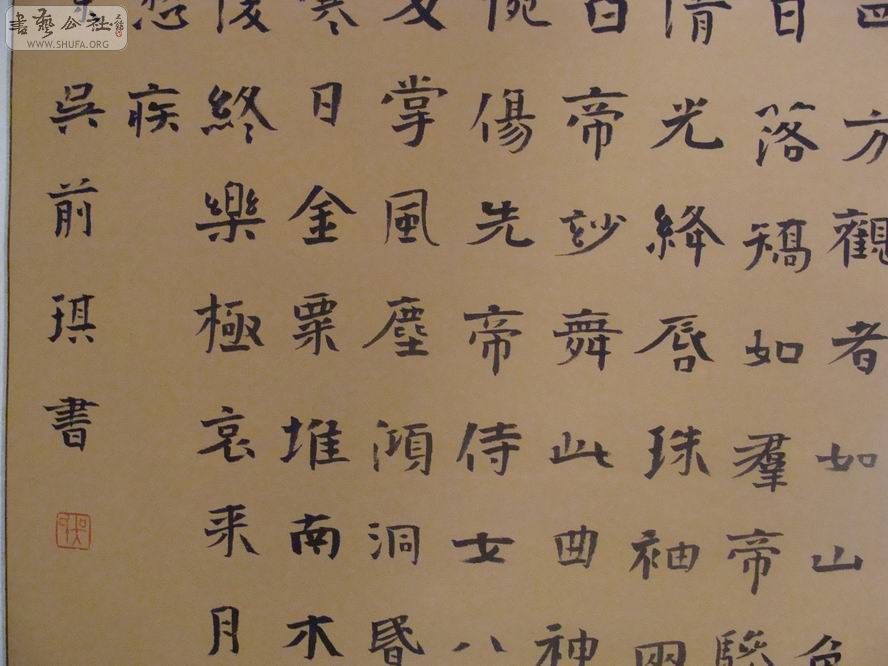 方觀者如山色
日落矯如羣帝驂
清光絳唇珠袖兩
白帝妙舞此曲神
惋傷先帝侍女八
反掌風塵澒洞昏
寒日金粟堆南木
復終樂極哀来月
愁疾
吳前琪書
書藝公社
WWW.SHUFA.ORG